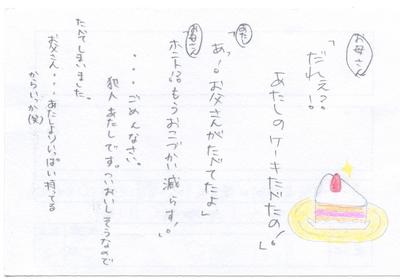 お母さん
「だれぇ?!
あたしのケーキたべたの!」
あたし
「あっ!お父さんがたべてたよ」
お母さん
ホント!?もうおこづかい減らす!!
・・・・ごめんなさい。
犯人あたしです。ついおいしそうなので
たべてしまいました。
お父さん・・・あたしよりいっぱい持ってる
からいっか(笑)